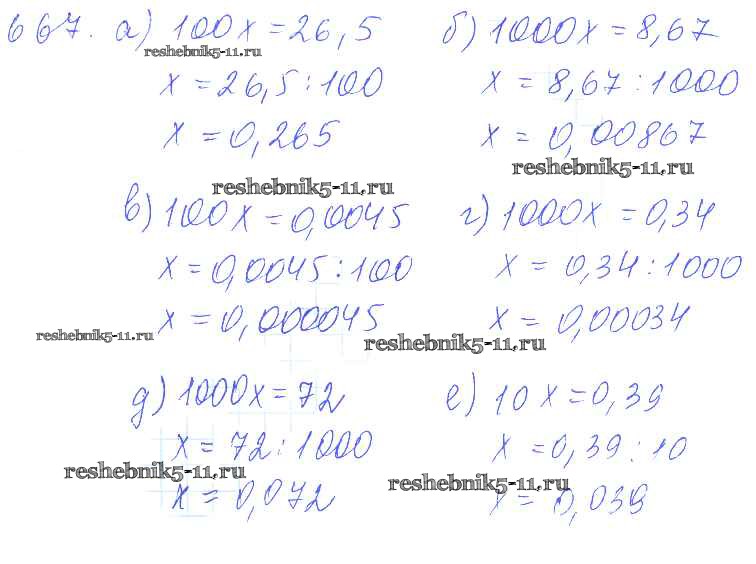 667. а) 100x = 26,5 б) 1000x = 8,67
reshebnik5-11.ru
x = 26,5 : 100 x = 8,67 : 1000
x = 0,265 x = 0,00867
reshebnik5-11.ru
reshebnik5-11.ru
в) 100x = 0,0045 г) 1000x = 0,34
x = 0,0045 : 100 x = 0,34 : 1000
x = 0,000045 x = 0,00034
reshebnik5-11.ru
reshebnik5-11.ru
д) 1000x = 72 е) 10x = 0,39
x = 72 : 1000 x = 0,39 : 10
reshebnik5-11.ru
reshebnik5-11.ru
x = 0,072 x = 0,039